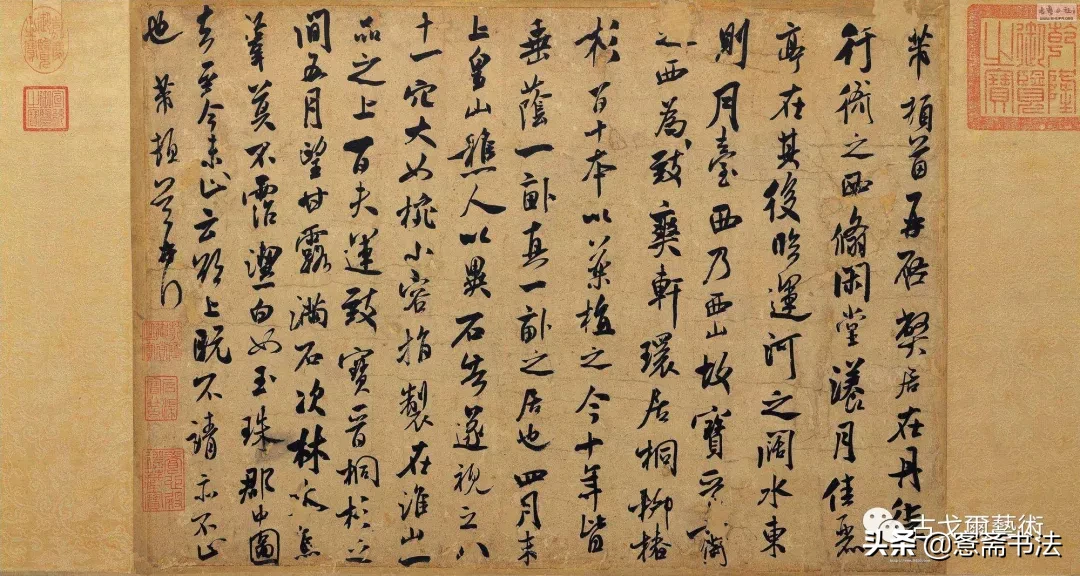 乾隆御覽之寶
芾頓首再啓弊居在丹徒
行衙之西翛閑堂漾月佳麗
亭在其後臨運河之闊水東
則月臺西乃西山故寶晉齋
之西為致爽軒環居桐柳椿
杉百十本以藥植之今十年皆
垂蔭一畝真一畝之居也四月末
上皇山樵人以異石告遂視之八
十一穴大如椀小容指製在淮山一
品之上百夫運致寶晉桐杉之
間五月望甘露滿石次林木焦
葦莫不霑潔白如玉珠郡中圖
去至今未止云欲上既不請亦不止
也 芾頓首再拜
古戈爾藝術
头条@窓斋书法